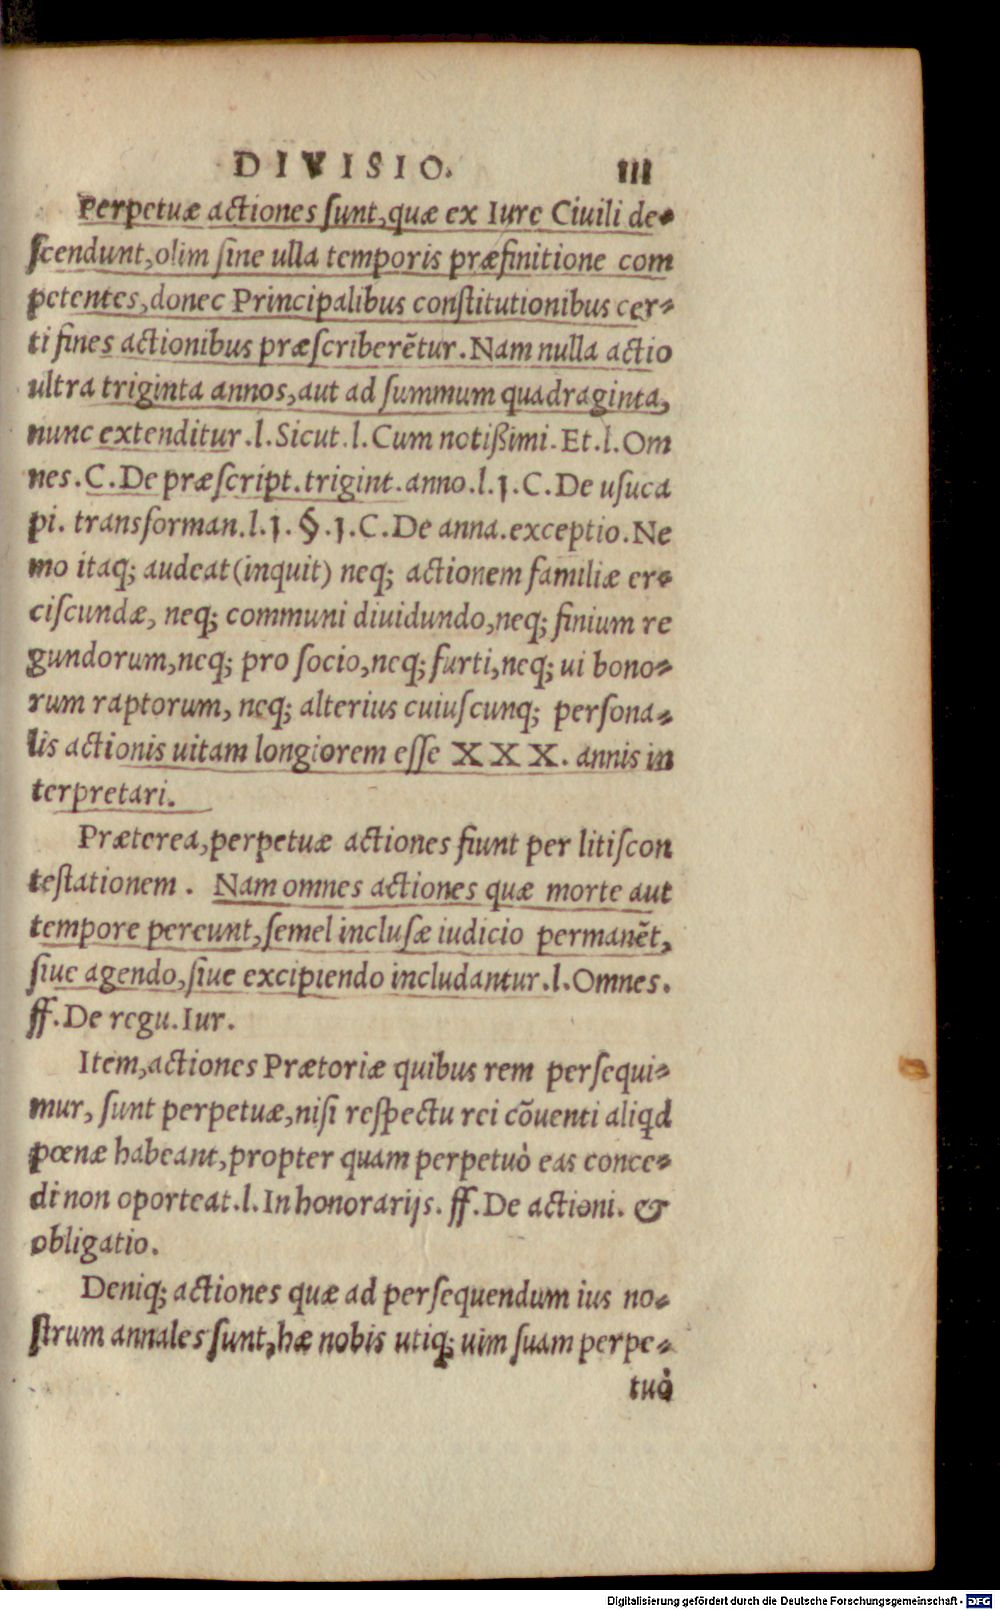 DIVISIO. III
Perpetuæ actiones ſunt, quæ ex Iure Ciuili de-
ſcendunt, olim ſine ulla temporis præfinitione com
petentes, donec Principalibus conſtitutionibus cer-
ti fines actionibus præſcriberētur. Nam nulla actio
ultra triginta annos, aut ad ſummum quadraginta,
nunc extenditur. l. Sicut. l. Cum notißimi. Et. l. Om
nes. C. De præſcript. trigint. anno. l. j. C. De uſuca
pi. transforman. l. j. §. j. C. De anna. exceptio. Ne
mo itaq; audeat (inquit) neq; actionem familiæ er-
ciſcundæ, neq; communi diuidundo, neq; finium re
gundorum, neq; pro ſocio, neq; furti, neq; ui bono-
rum raptorum, neq; alterius cuiuſcunq; perſona-
lis actionis uitam longiorem eſſe XXX. annis in
terpretari.
Præterea, perpetuæ actiones fiunt per litiſcon
teſtationem. Nam omnes actiones quæ morte aut
tempore pereunt, ſemel incluſæ iudicio permanēt,
ſiue agendo, ſiue excipiendo includantur. l. Omnes.
ff. De regu. Iur.
Item, actiones Prætoriæ quibus rem perſequi-
mur, ſunt perpetuæ, niſi reſpectu rei cōuenti aliqd
pœnæ habeant, propter quam perpetuò eas conce-
di non oporteat. l. In honorarijs. ff. De actioni. &
obligatio.
Deniq; actiones quæ ad perſequendum ius no-
ſtrum annales ſunt, hæ nobis utiq; uim ſuam perpe-
tuò
Digitalisierung gefördert durch die Deutsche Forschungsgemeinschaft - DFG